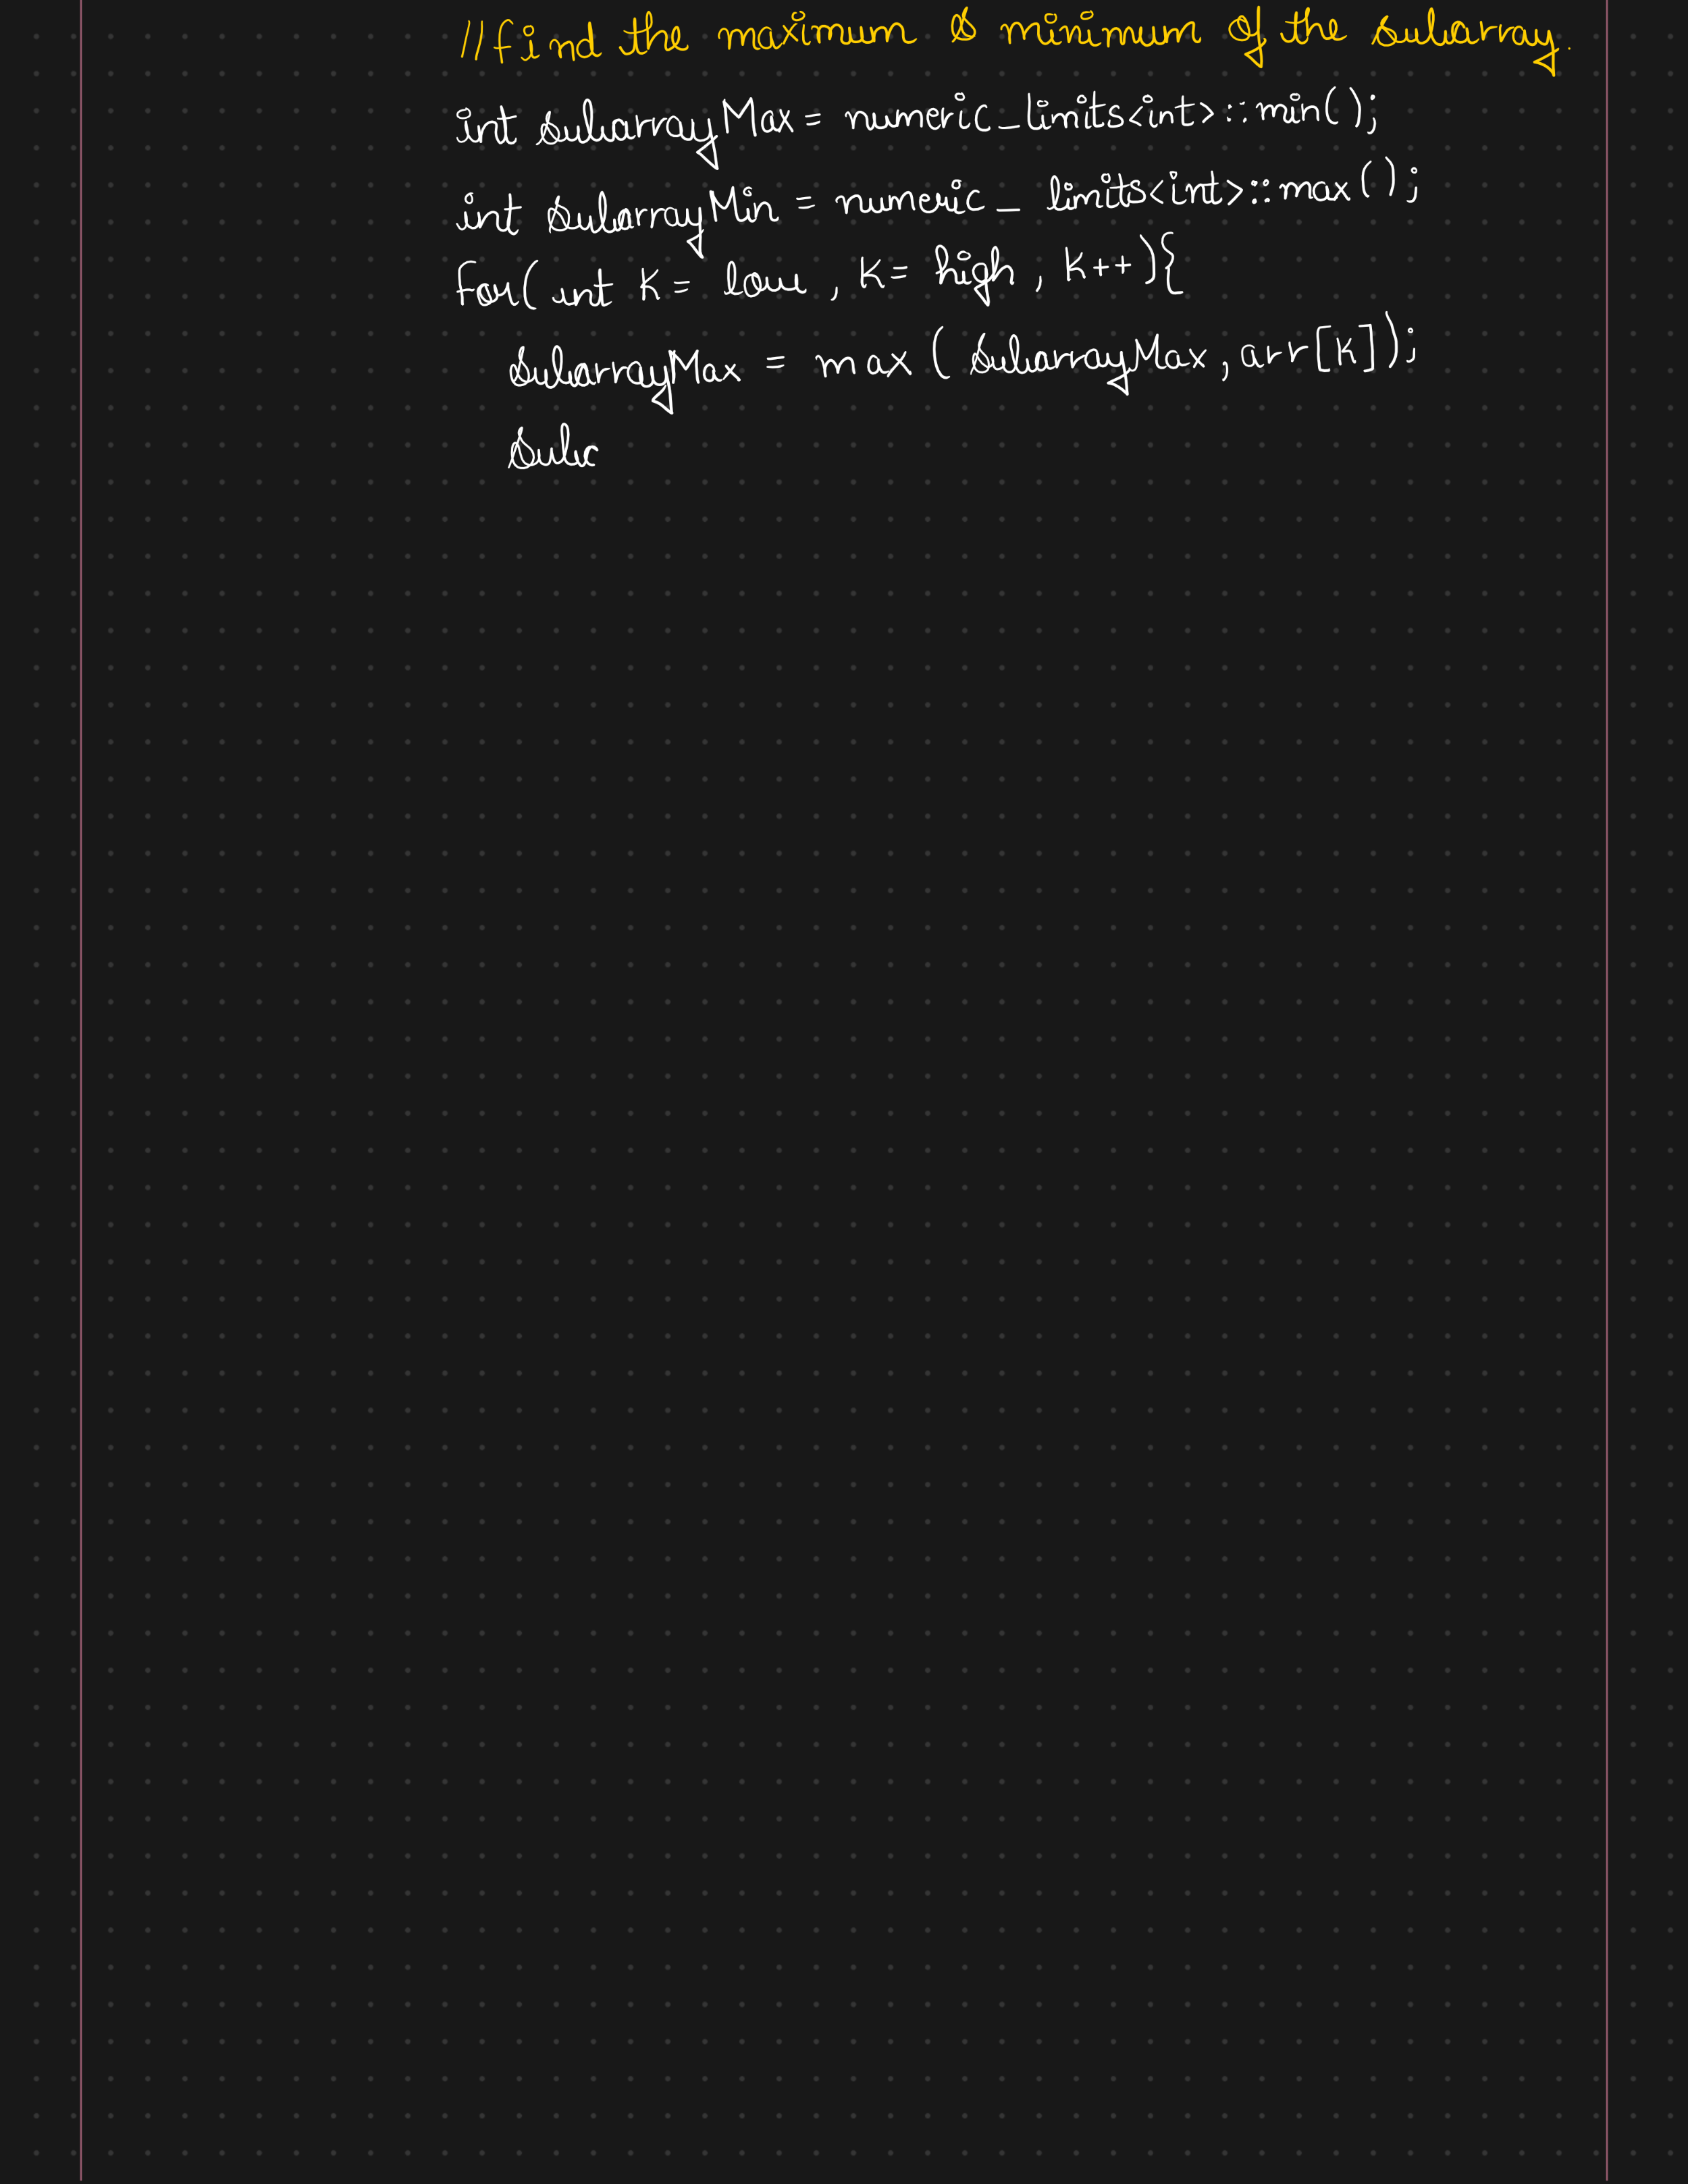 //find the maximum & minimum of the subarray.
int subarrayMax = numeric_limits<int>::min();
int subarrayMin = numeric_limits<int>::max();
for( int K = low , K = high , K++){
subarrayMax = max ( subarrayMax , arr[K]);
suba